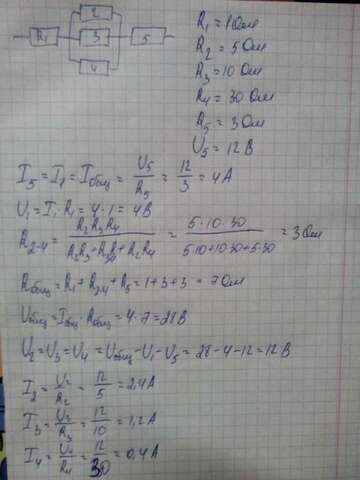 R₁ 2 3 4 5
R₁ = 1 Ом
R₂ = 5 Ом
R₃ = 10 Ом
R₄ = 30 Ом
R₅ = 3 Ом
U₅ = 12 В
I₅ = I₁ = Iобщ = U₅/R₅ = 12/3 = 4 А
U₁ = I₁ R₁ = 4 · 1 = 4 В
R₂₋₄ = R₂R₃R₄/(R₂R₃+R₃R₄+R₂R₄) = 5·10·30/(5·10+10·30+5·30) = 3 Ом
Rобщ = R₁ + R₂₋₄ + R₅ = 1 + 3 + 3 = 7 Ом
Uобщ = Iобщ · Rобщ = 4 · 7 = 28 В
U₂ = U₃ = U₄ = Uобщ − U₁ − U₅ = 28 − 4 − 12 = 12 В
I₂ = U₂/R₂ = 12/5 = 2,4 А
I₃ = U₃/R₃ = 12/10 = 1,2 А
I₄ = U₄/R₄ = 12/30 = 0,4 А